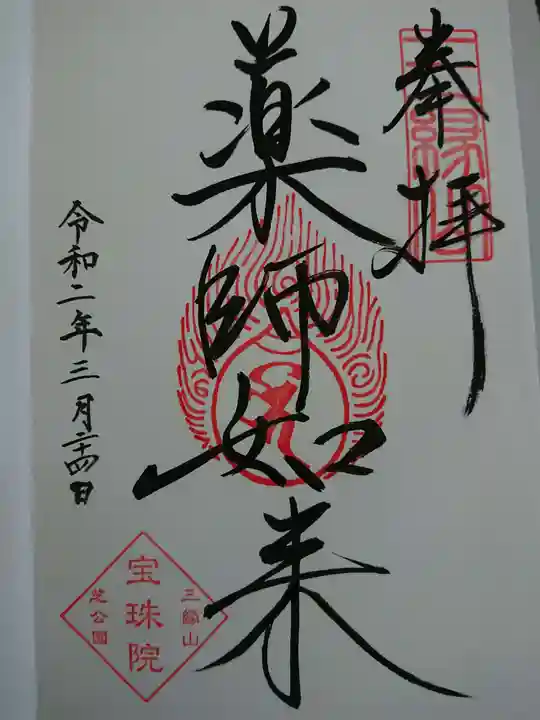 奉拝
三縁山
薬師如来
令和二年三月二十四日
三縁山
宝珠院
芝公園